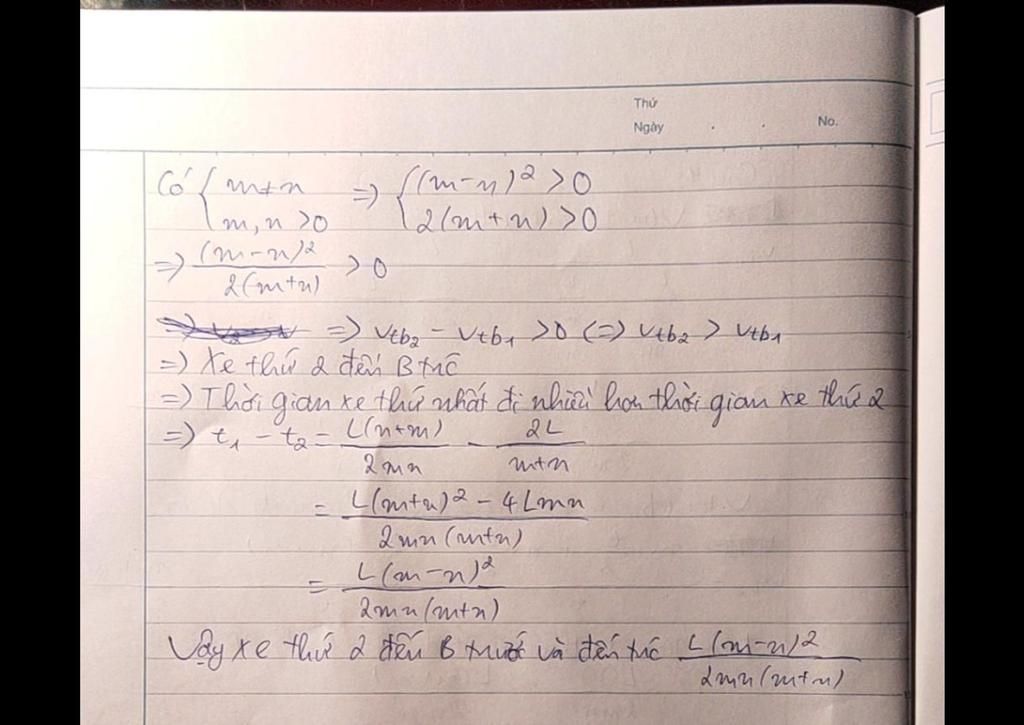 Thứ
Ngày . . No.
Có { m≠n => { (m-n)² > 0
m, n > 0 2(m+n) > 0
=> (m-n)² / 2(m+n) > 0
=> Vtb₂ - Vtb₁ > 0 (=> Vtb₂ > Vtb₁
=> Xe thứ 2 đến B trc
=> Thời gian xe thứ nhất đi nhiều hơn thời gian xe thứ 2
=> t₁ - t₂ = L(n+m) / 2mn - 2L / m+n
= L(m+n)² - 4Lmn / 2mn(m+n)
= L(m-n)² / 2mn(m+n)
Vậy xe thứ 2 đến B trước và đến trc L(m-n)² / 2mn(m+n)